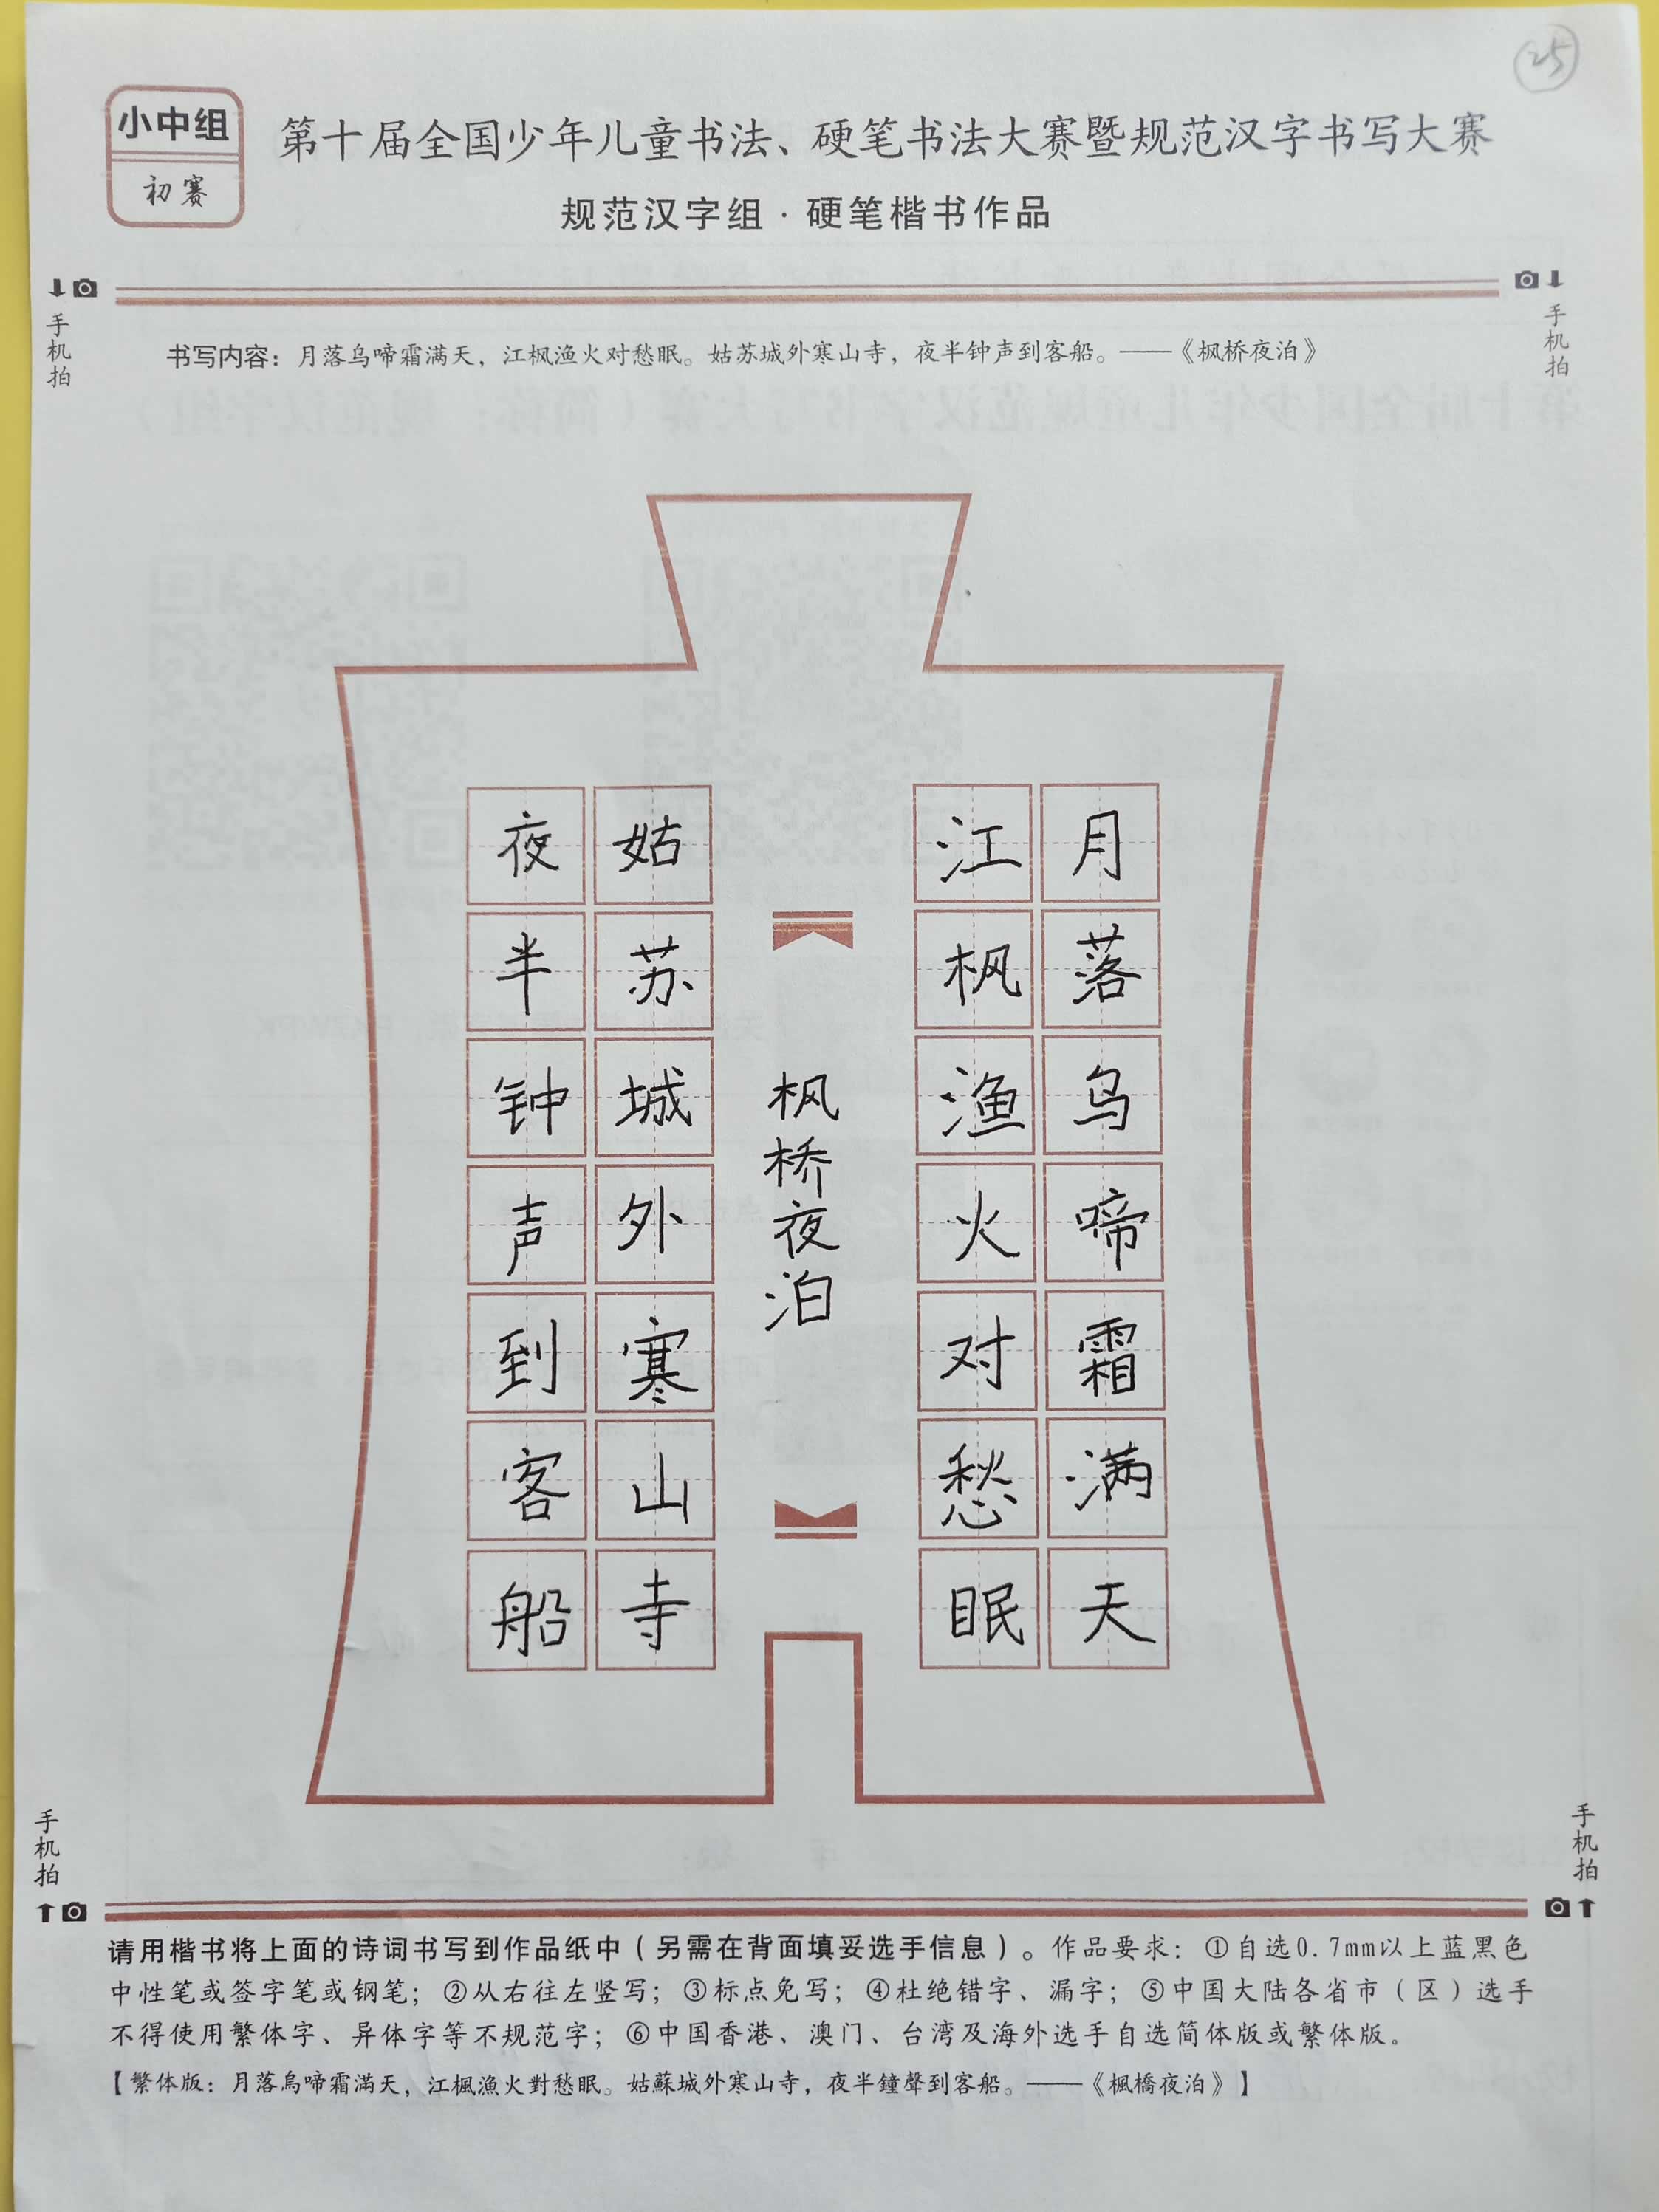 25
小中组
初赛
第十届全国少年儿童书法、硬笔书法大赛暨规范汉字书写大赛
规范汉字组·硬笔楷书作品
手机拍
手机拍
书写内容：月落乌啼霜满天，江枫渔火对愁眠。姑苏城外寒山寺，夜半钟声到客船。——《枫桥夜泊》
月落乌啼霜满天
江枫渔火对愁眠
枫桥夜泊
姑苏城外寒山寺
夜半钟声到客船
手机拍
手机拍
请用楷书将上面的诗词书写到作品纸中（另需在背面填妥选手信息）。作品要求：①自选0.7mm以上蓝黑色
中性笔或签字笔或钢笔；②从右往左竖写；③标点免写；④杜绝错字、漏字；⑤中国大陆各省市（区）选手
不得使用繁体字、异体字等不规范字；⑥中国香港、澳门、台湾及海外选手自选简体版或繁体版。
【繁体版：月落烏啼霜滿天，江楓漁火對愁眠。姑蘇城外寒山寺，夜半鐘聲到客船。——《楓橋夜泊》】